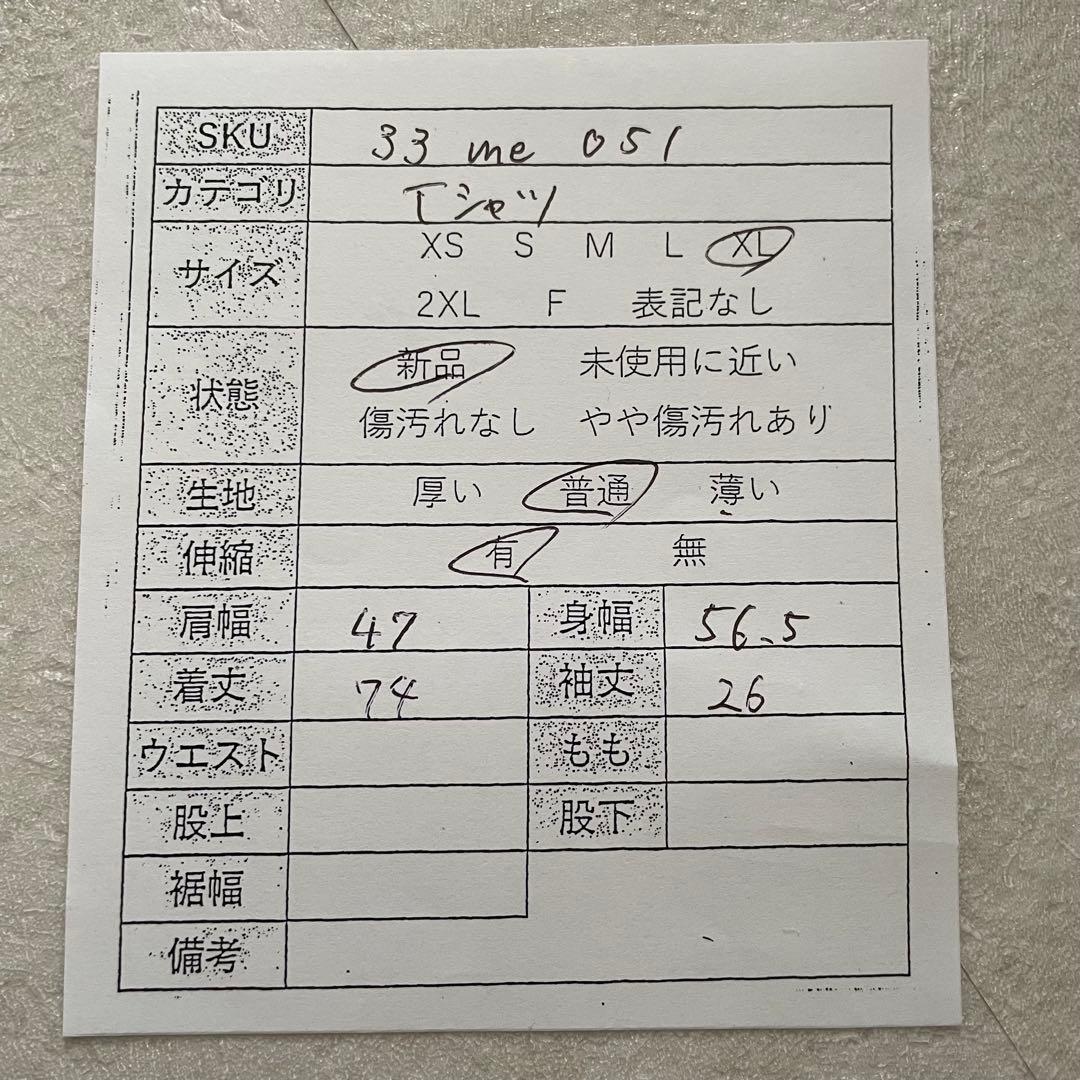 SKU 33 me 051
カテゴリ Tシャツ
サイズ XS S M L XL
2XL F 表記なし
状態 新品 未使用に近い
傷汚れなし やや傷汚れあり
生地 厚い 普通 薄い
伸縮 有 無
肩幅 47 身幅 56.5
着丈 74 袖丈 26
ウエスト もも
股上 股下
裾幅
備考